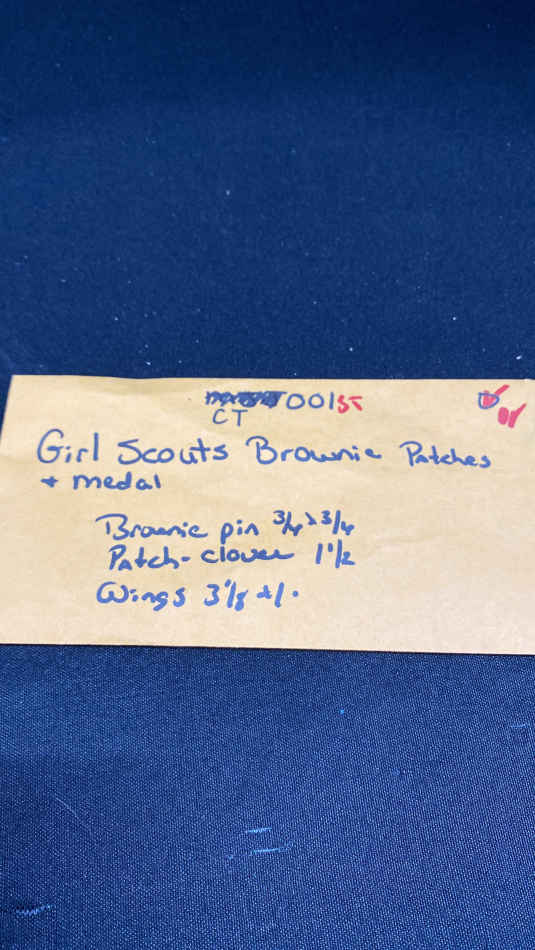 001ST
CT
Girl Scouts Brownie Patches
+ medal
Brownie pin 3/4 x 3/4
Patch- clover 1 1/2
Wings 3 1/8 x 1.